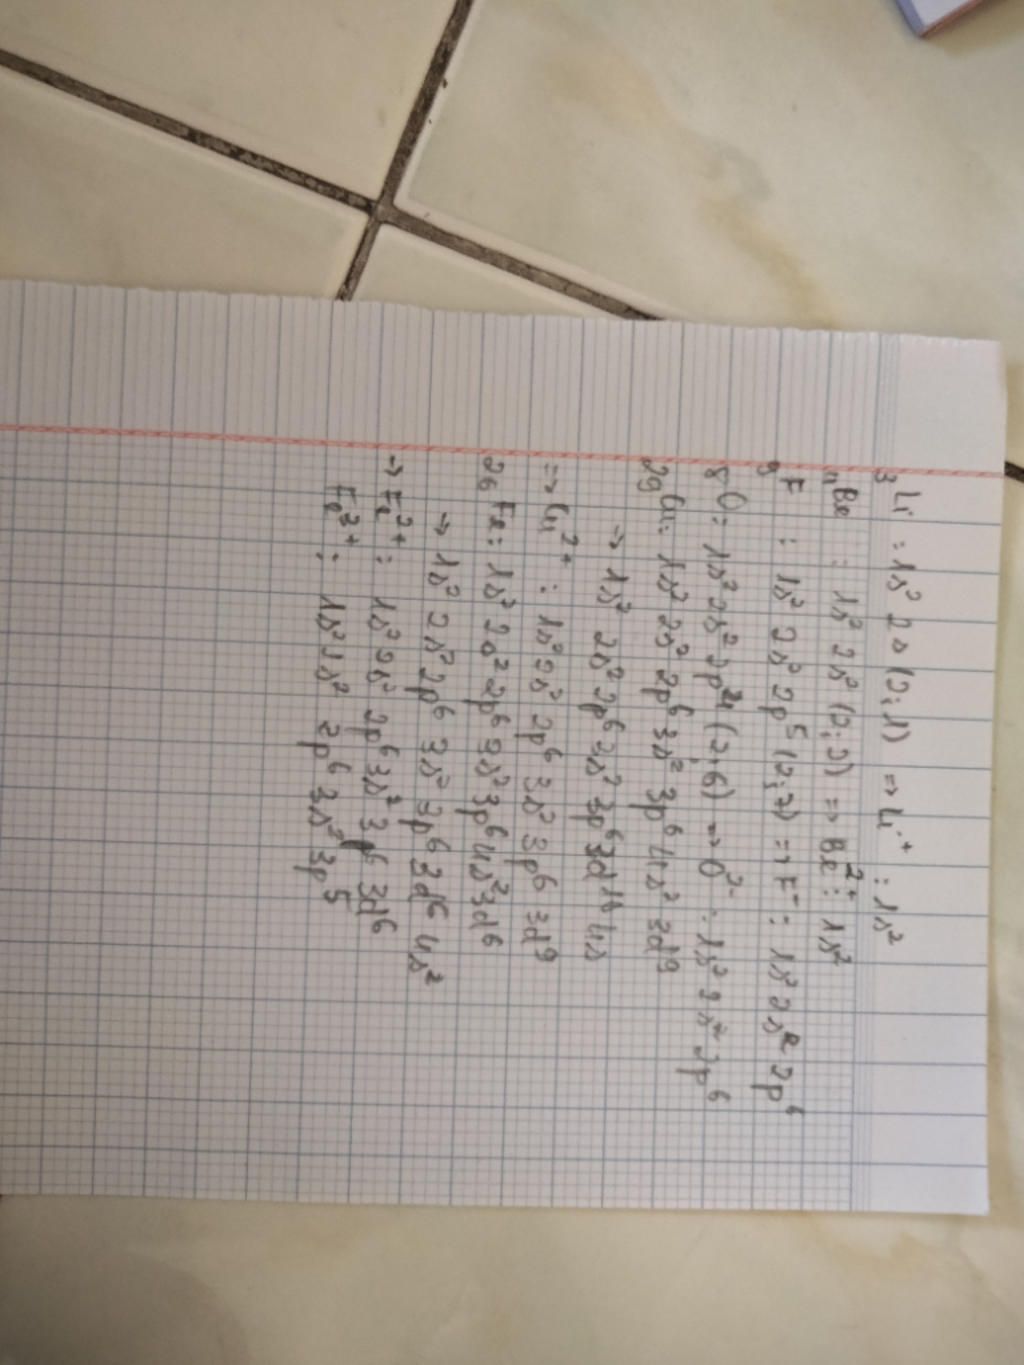 ₃Li : 1s² 2s (2;1) => Li⁺ : 1s²
₄Be : 1s² 2s² (2;2) => Be²⁺ : 1s²
₉F : 1s² 2s² 2p⁵ (2;7) => F⁻ : 1s² 2s² 2p⁶
₈O : 1s² 2s² 2p⁴ (2;6) => O²⁻ : 1s² 2s² 2p⁶
₂₉Cu : 1s² 2s² 2p⁶ 3s² 3p⁶ 4s² 3d⁹
→ 1s² 2s² 2p⁶ 3s² 3p⁶ 3d¹⁰ 4s
=> Cu²⁺ : 1s² 2s² 2p⁶ 3s² 3p⁶ 3d⁹
₂₆Fe : 1s² 2s² 2p⁶ 3s² 3p⁶ 4s² 3d⁶
→ 1s² 2s² 2p⁶ 3s² 3p⁶ 3d⁶ 4s²
→ Fe²⁺ : 1s² 2s² 2p⁶ 3s² 3p⁶ 3d⁶
Fe³⁺ : 1s² 2s² 2p⁶ 3s² 3p⁵